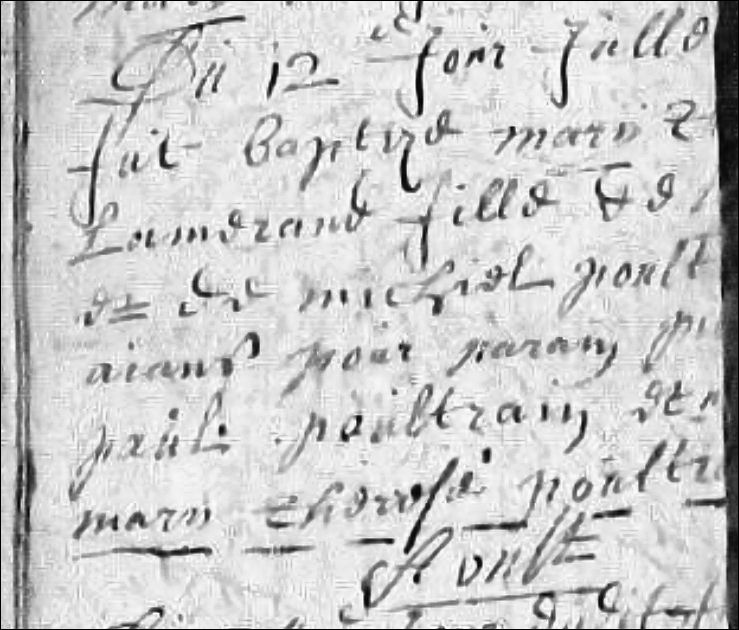 Du 12 Jour Julle
fut baptize marii
Lamerand fille de
et de michiel poult
aians pour parain
paul poultrain et
marii therese poultr
Aoust